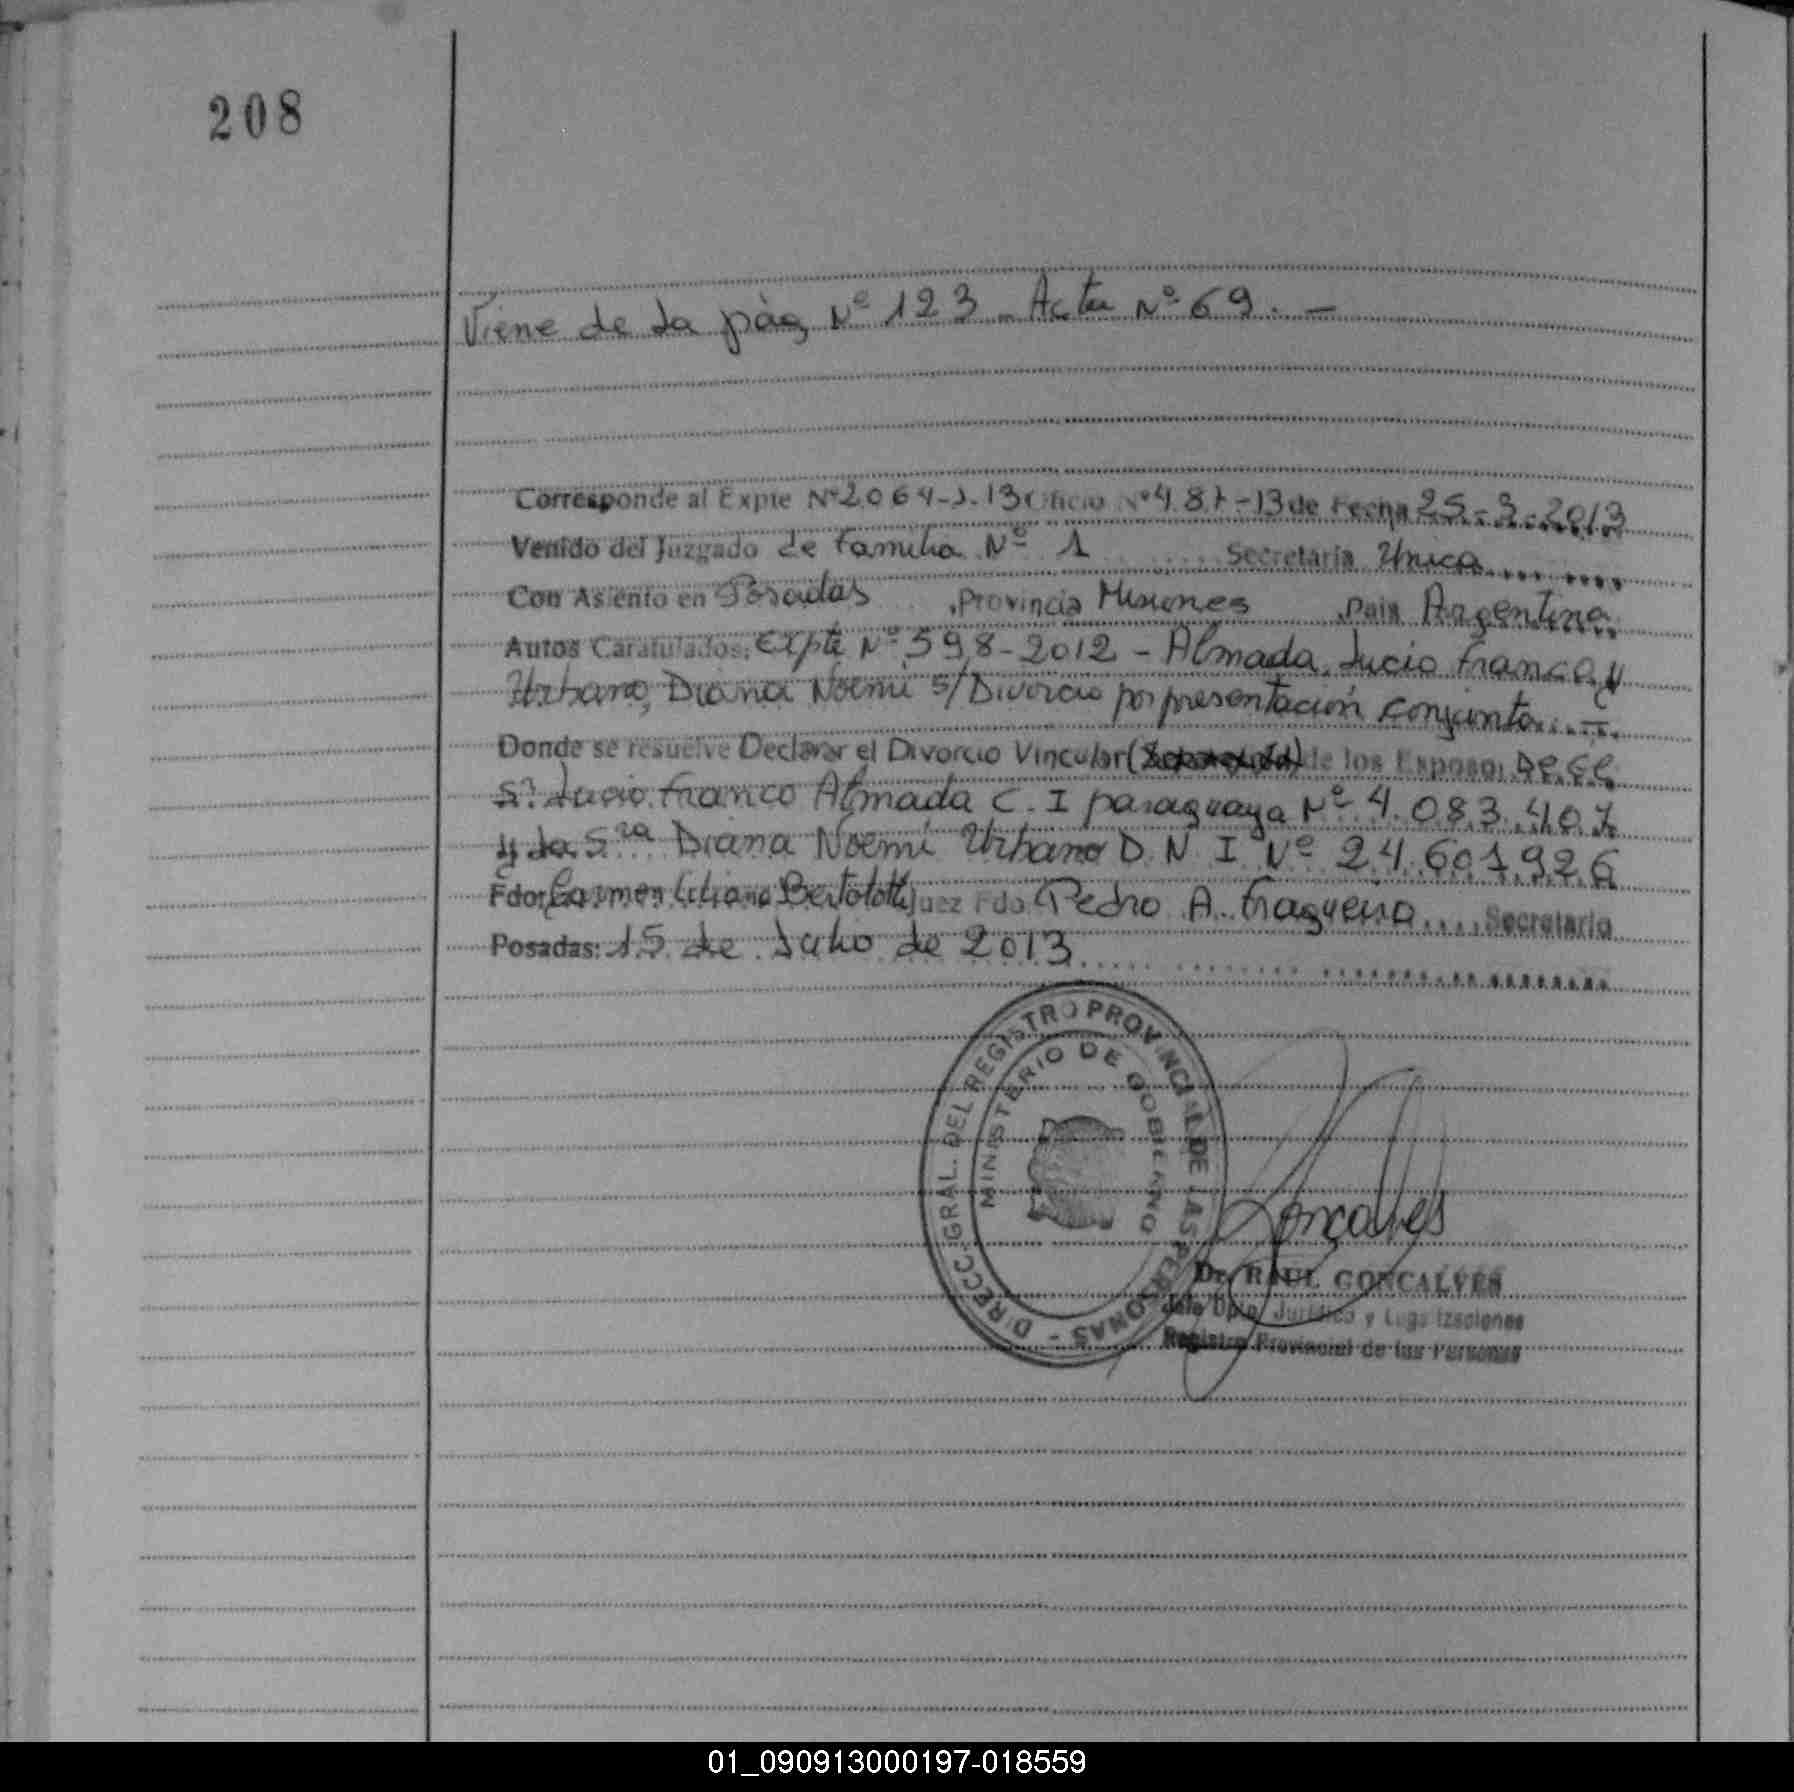 208
Viene de la pág Nº 123 - Acta Nº 69. -
Corresponde al Expte Nº 2064-J-13 Oficio Nº 487-13 de Fecha 25-3-2013
Venido del Juzgado de Familia Nº 1 Secretaría Unica
Con Asiento en Posadas, Provincia Misiones, Pais Argentina
Autos Caratulados: Expte Nº 598-2012 - Almada, Lucio Franco y
Urbano, Diana Noemi s/ Divorcio por presentación conjunta
Donde se resuelve Declarar el Divorcio Vincular ( ) de los Esposos
Sr Lucio Franco Almada C. I paraguaya Nº 4.083.407
y la Sra Diana Noemí Urbano D. N. I Nº 24.601.926
Fdo: Carmen Liliana Bertolotti Juez Fdo Pedro A. Fragueiro Secretario
Posadas: 15 de Julio de 2013
DIRECC. GRAL. DEL REGISTRO PROVINCIAL DE LAS PERSONAS -
MINISTERIO DE GOBIERNO
Gonçalves
Dr. RAUL GONCALVES
Jefe Dpto. Jurídico y Legalizaciones
Registro Provincial de las Personas
01_090913000197-018559